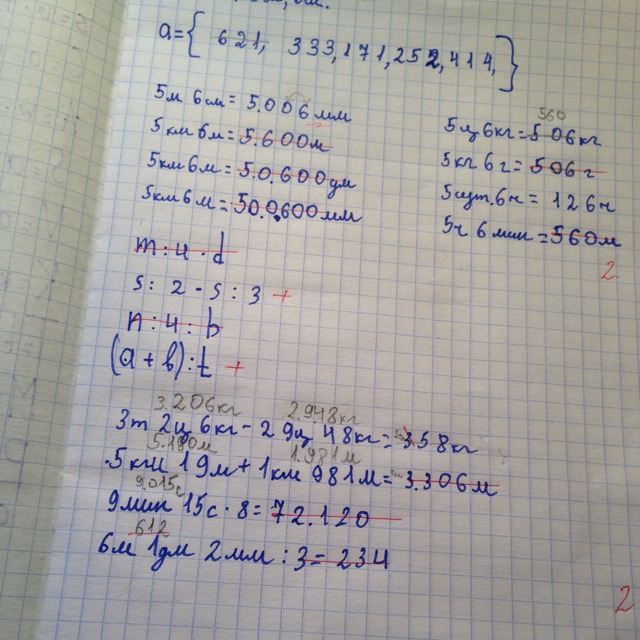 a={ 621, 333,171,252,414, }
5м 6см= 5.006мм
5км 6м= 5.600м
5км6м= 50.600дм
5км6м= 50.0600мм
560
5ц6кг=506кг
5кг 6г= 506г
5сут.6ч = 126ч
5ч 6мин=560м
2
m:4·d
s: 2 - s: 3 +
n:4:b
(a+b):t +
3.206кг 2.948кг
3т 2ц 6кг- 29ц 48кг= 358кг
5.190м 1.981м
5км 19м+1км 981м= 3.306м
9.015с
9мин 15с·8= 72.120
612
6м 1дм 2мм :3= 234
2